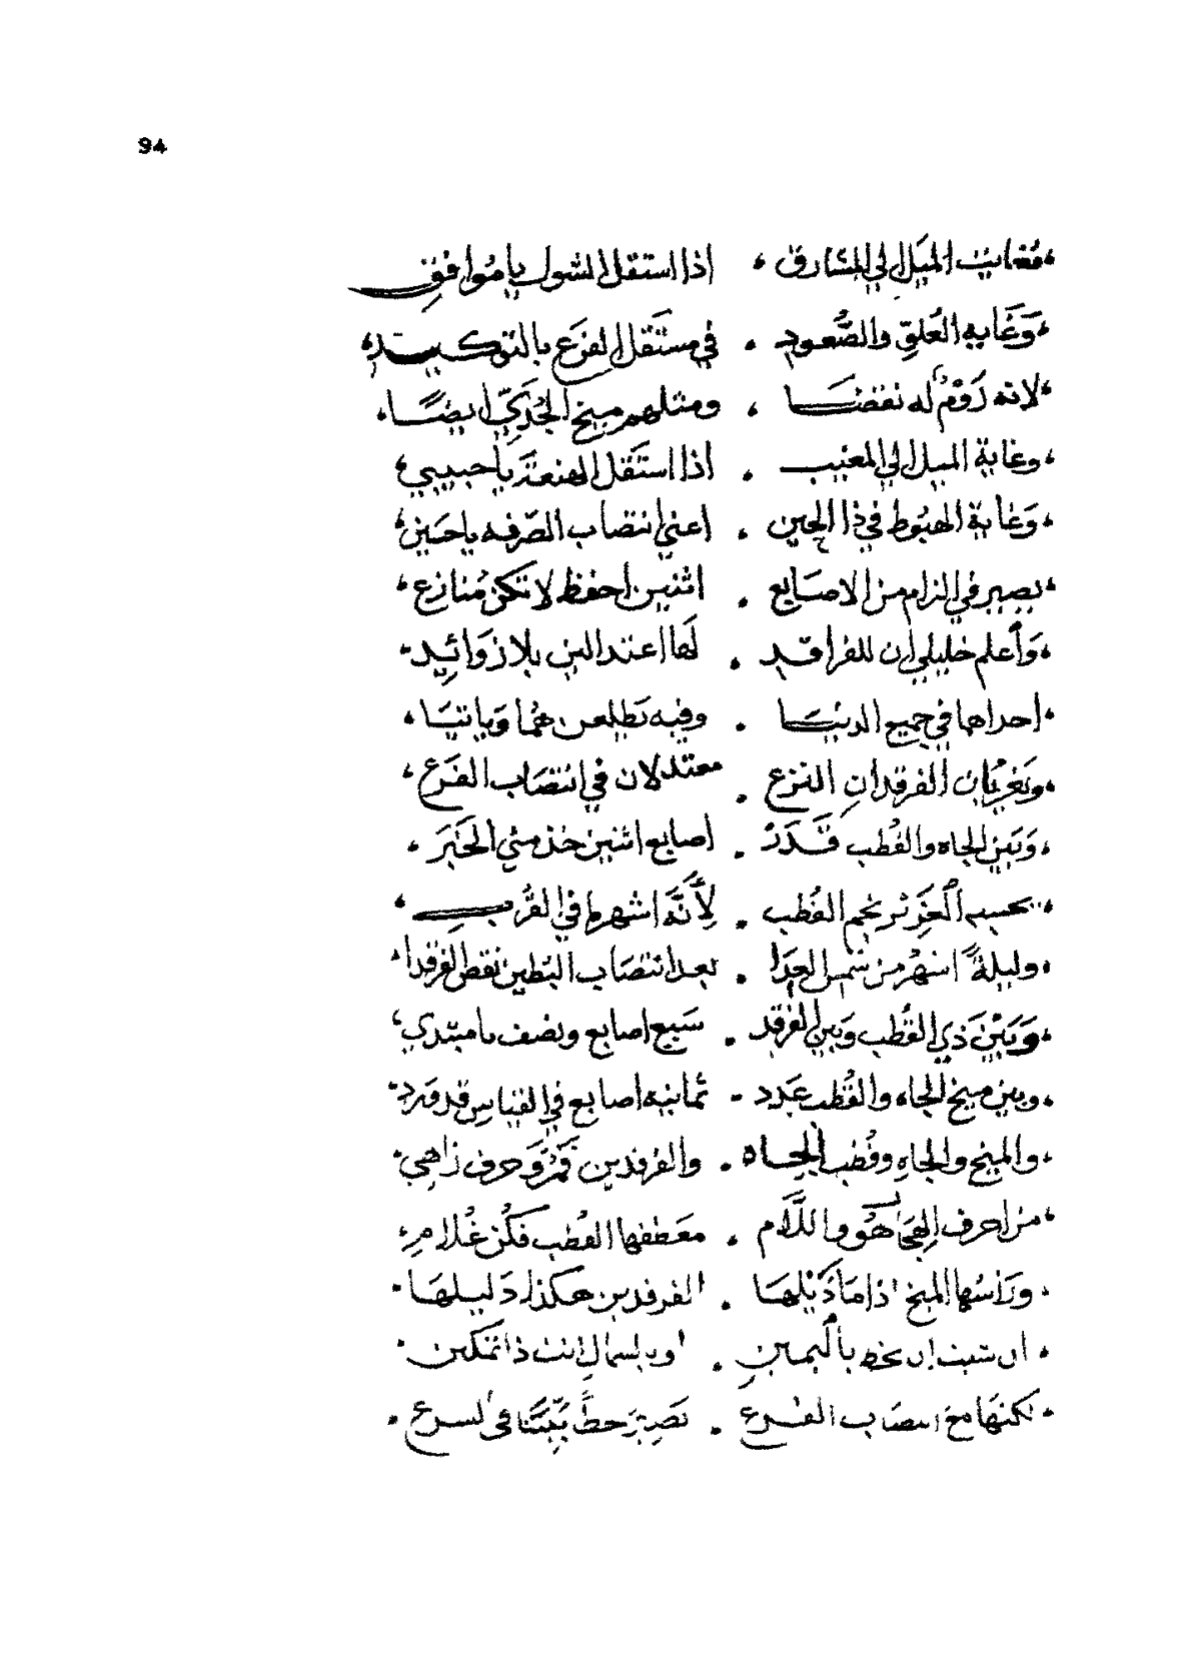 94
فغايت الميل الي المشارق ، اذا استقل الشول يا موافق
وَغَايه العُلوِّ والصُّعود ، في مستَقل الفرَع بالتوكيد
لانه رَوْمُ له نقضَا ، ومثلهم ميخ الجُدَيّ ايضًا
وغاية الميل الي المغيب ، اذا استَقل الهنعة يا حبيبي
وَغاية الهبُوط في ذا الحين ، اعني انتصاب الصّرفه يا حَين
يصير في الزام من الاصَابع ، اثنين احفظ لا تكن مُنازع
وَأعلم خليلي ان للفراقد ، لَها اعتدالين بلا زوَائِد
احداها في جميع الدنيَا ، وفيه تطلعن هُما وَياتيَا
وَتغرُبان الفرقدانِ النزع ، معتدلان في انتصَاب الفرَع
وَبَين الجاه والقُطب قَدَرْ ، اصابع اثنين خذ مني الخَبَر
تحسبه العَزِّ نجم القُطب ، لِأَنَّهَ اشهرها في القُرب
وليلةً اشهرْ من شمس العِدَا ، بعد انتصَاب البَطين نقط الفرقدا
وَبَيْنَ ذي القُطب وَبين الفرقد ، سَبع اصابع ونصف يا مبتدي
وبين ميخ الجاه والقُطب عَدد ، ثمانيه اصابع في القياس قد ورد
والميخ والجاهِ وقُطب الجاه ، والفرقدين هَمْزوَحرف زاهي
من احرف الهِجَا هُو واللَّام ، معَطفها القُطب فكُن غُلام
وَرَاسُها الميخ اذا مَا ذَيْلهَا ، الفرقدين هكذا دَليلهَا
ان شيت ان تخط باليمين ، او بالشمال انت ذا تمكين
لكنهَا مع انتصَاب الفرع ، تصِيرَ خطًّ بَيِّنًا في السرع